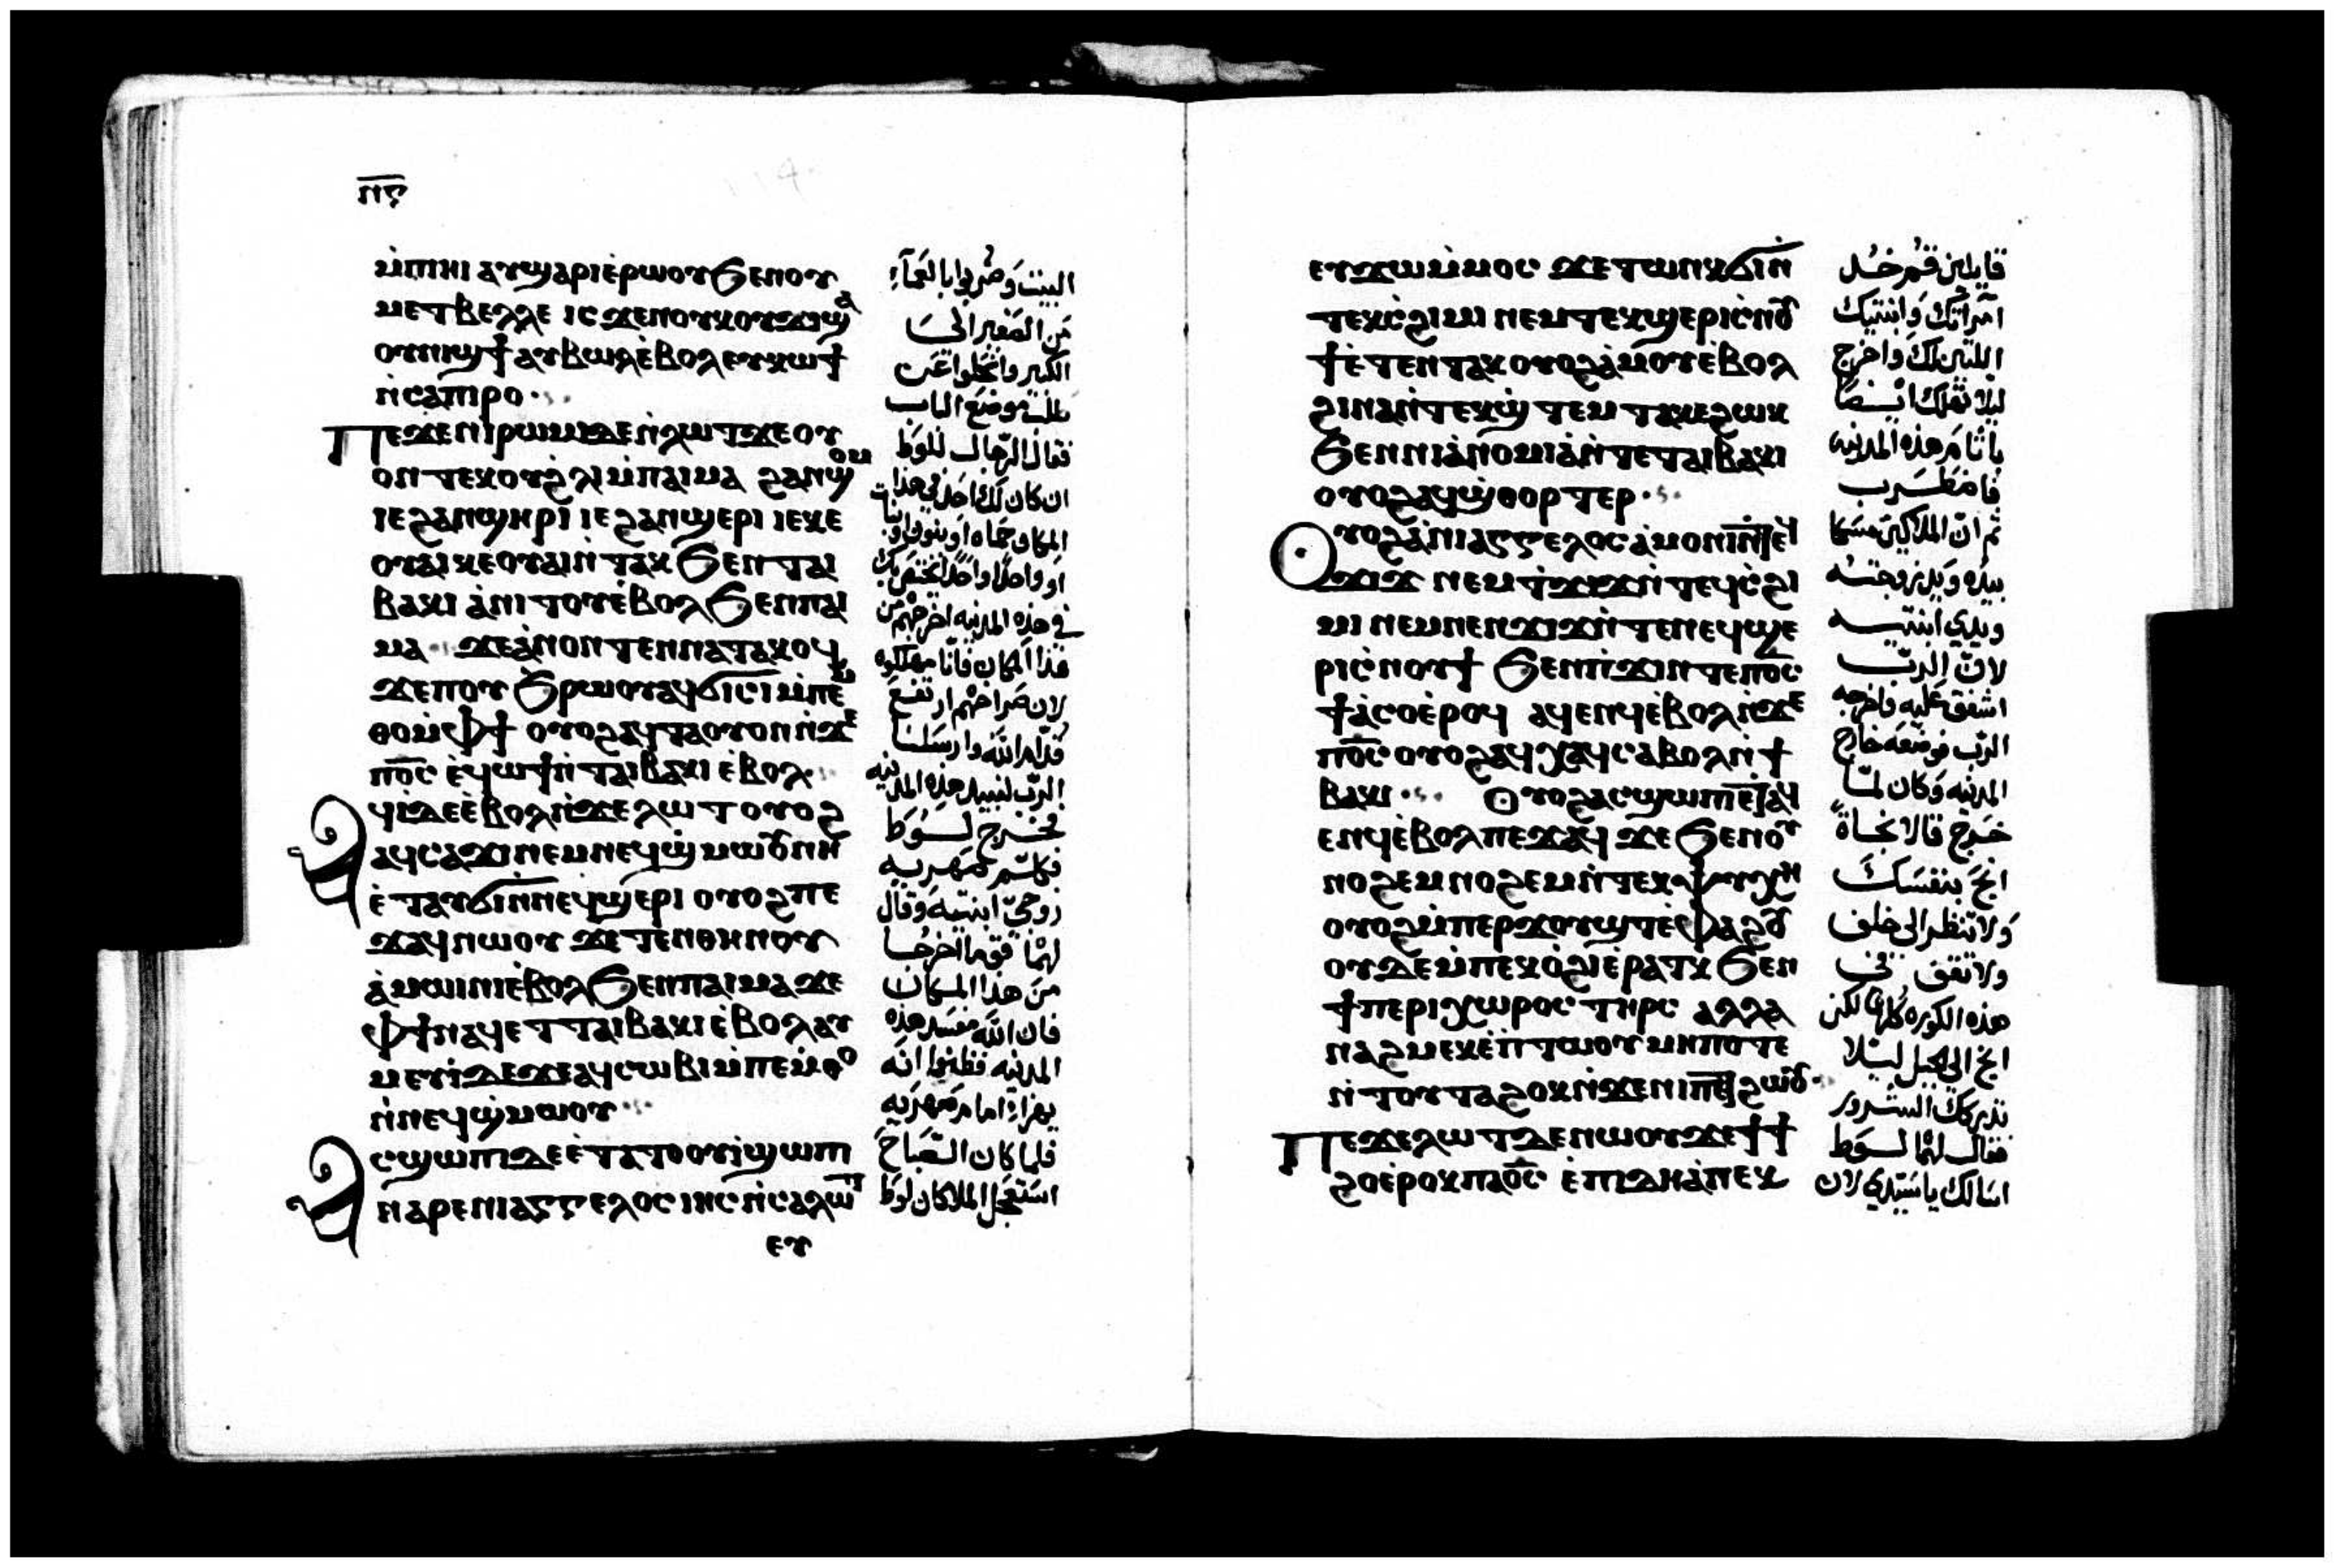 ⲡⲋ
ⲙ̀ⲡⲏⲓ ⲁⲩϣⲁⲣⲓ ⲉ̀ⲣⲱⲟⲩ ϧⲉⲛⲟⲩ
ⲙⲉⲧⲃⲉⲗⲗⲉ ⲓⲥϫⲉⲛⲟⲩⲕⲟⲩϫⲓ ϣⲁ
ⲟⲩⲛⲓϣϯ ⲁⲩⲃⲱⲗ ⲉ̀ⲃⲟⲗ ⲉⲩⲕⲱϯ
ⲛ̀ⲥⲁⲡⲓⲣⲟ
Ⲡⲉϫⲉⲛⲓⲣⲱⲙⲓ ⲇⲉ ⲛ̀ⲗⲱⲧ ϫⲉ ⲟⲩ
ⲟⲛ ⲧⲉⲕⲟⲩϩⲗⲓ ⲙ̀ⲡⲁⲓⲙⲁ ϩⲁⲛϣⲟⲙ
ⲓⲉ ϩⲁⲛϣⲏⲣⲓ ⲓⲉ ϩⲁⲛϣⲉⲣⲓ ⲓⲉ ⲕⲉ
ⲟⲩⲁⲓ ⲕⲉⲟⲩⲁⲓ ⲛ̀ⲧⲁⲕ ϧⲉⲛ ⲧⲁⲓ
ⲃⲁⲕⲓ ⲁ̀ⲛⲓⲧⲟⲩ ⲉ̀ⲃⲟⲗ ϧⲉⲛ ⲡⲁⲓ
ⲙⲁ ϫⲉ ⲁ̀ⲛⲟⲛ ⲧⲉⲛⲛⲁⲧⲁⲕⲟϥ
ϫⲉ ⲡⲟⲩϧⲣⲱⲟⲩ ⲁϥϭⲓⲥⲓ ⲙ̀ⲡⲉⲙ
ⲑⲟ ⲙ̀ⲫϯ ⲟⲩⲟϩ ⲁϥⲧⲁⲟⲩⲟⲛ ⲛ̀ϫⲉ
ⲡⲟ̅ⲥ̅ ⲉ̀ϥⲱϯ ⲛ̀ⲧⲁⲓⲃⲁⲕⲓ ⲉ̀ⲃⲟⲗ
Ⲁϥⲓ̀ ⲇⲉ ⲉ̀ⲃⲟⲗ ⲛ̀ϫⲉ ⲗⲱⲧ ⲟⲩⲟϩ
ⲁϥⲥⲁϫⲓ ⲛⲉⲙ ⲛⲉϥϣ̀ⲙⲱⲟⲩ ⲛⲏ
ⲉ̀ⲧⲁⲩϭⲓ ⲛ̀ⲛⲉϥϣⲉⲣⲓ ⲟⲩⲟϩ ⲡⲉ
ϫⲁϥ ⲛⲱⲟⲩ ϫⲉ ⲧⲉⲛⲑⲏⲛⲟⲩ
ⲁ̀ⲙⲱⲓⲛⲓ ⲉ̀ⲃⲟⲗ ϧⲉⲛ ⲡⲁⲓⲙⲁ ϫⲉ
ⲫϯ ⲛⲁϥⲉⲧ ⲧⲁⲓⲃⲁⲕⲓ ⲉ̀ⲃⲟⲗ ⲁⲩ
ⲙⲉⲩⲓ̀ ⲇⲉ ϫⲉ ⲁϥⲥⲱⲃⲓ ⲙ̀ⲡⲉⲙ̀ⲑⲟ
ⲛ̀ⲛⲉϥϣ̀ⲙⲱⲟⲩ
Ⲁⲥϣⲱⲡⲓ ⲇⲉ ⲉ̀ⲧⲁ ⲧⲟⲟⲩⲓ̀ ϣⲱⲡⲓ
ⲛⲁⲣⲉ ⲛⲓⲁⲅⲅⲉⲗⲟⲥ ⲓⲏⲥ ⲛ̀ⲥⲁ ⲗⲱⲧ
ⲉⲩ
البيت وضربوا بالعمآء
من الصغير الى
الكبير وانحلوا عن
طلب موضع الباب
فقال الرجال للوط
ان كان لك احد في هذا
المكان حماه او بنون او بنات
او واحدا واحدا يختص بك
في هذه المدينه اخرجهم من
هذا المكان فانا مهلكوه
لان صراخهم ارتفع
قدام الله وارسلنا
الرب لنبيد هذه المدينه
فخرج لوط
فكلم صهريه
زوجى ابنتيه وقال
لهما قوما اخرجا
من هذا المكان
فان الله مفسد هذه
المدينه فظنوا انه
يهزاء امام صهريه
فلما كان الصباح
استعجل الملاكان لوط
ⲉⲩϫⲱ ⲙ̀ⲙⲟⲥ ϫⲉ ⲧⲱⲛⲕ ϭⲓ ⲛ̀
ⲧⲉⲕⲥ̀ϩⲓⲙⲓ ⲛⲉⲙ ⲧⲉⲕϣⲉⲣⲓ ⲥ̀ⲛⲟⲩ
ϯ ⲉ̀ⲧⲉⲛⲧⲁⲕ ⲟⲩⲟϩ ⲁ̀ⲙⲟⲩ ⲉ̀ⲃⲟⲗ
ϩⲓⲛⲁ ⲛ̀ⲧⲉⲕϣ̀ⲧⲉⲙⲧⲁⲕⲉ ϩⲱⲕ
ϧⲉⲛ ⲛⲓⲁ̀ⲛⲟⲙⲓⲁ̀ ⲛ̀ⲧⲉ ⲧⲁⲓⲃⲁⲕⲓ
ⲟⲩⲟϩ ⲁϥϣ̀ⲑⲟⲣⲧⲉⲣ
Ⲟⲩⲟϩ ⲁ̀ ⲛⲓⲁⲅⲅⲉⲗⲟⲥ ⲁ̀ⲙⲟⲛⲓ ⲛ̀ⲧⲉϥ
ϫⲓϫ ⲛⲉⲙ ⲧ̀ϫⲓϫ ⲛ̀ⲧⲉϥⲥ̀ϩⲓ
ⲙⲓ ⲛⲉⲙ ⲛⲉⲛϫⲓϫ ⲛ̀ⲧⲉ ⲛⲉϥϣⲉ
ⲣⲓ ⲥ̀ⲛⲟⲩϯ ϧⲉⲛ ⲡ̀ϫⲓⲛⲧⲉ ⲡⲟ̅ⲥ̅
ϯⲁ̀ⲥⲟ ⲉ̀ⲣⲟϥ ⲁϥⲉⲛϥ ⲉ̀ⲃⲟⲗ ⲛ̀ϫⲉ
ⲡⲟ̅ⲥ̅ ⲟⲩⲟϩ ⲁϥⲭⲁϥ ⲥⲁⲃⲟⲗ ⲛ̀ϯ
ⲃⲁⲕⲓ Ⲟⲩⲟϩ ⲁⲥϣⲱⲡⲓ ⲉ̀ⲧⲁϥ
ⲉⲛϥ ⲉ̀ⲃⲟⲗ ⲡⲉϫⲁϥ ϫⲉ ϧⲉⲛ ⲟⲩ
ⲛⲟϩⲉⲙ ⲛⲟϩⲉⲙ ⲛ̀ⲧⲉⲕⲯⲩⲭⲏ
ⲟⲩⲟϩ ⲙ̀ⲡⲉⲣϫⲟⲩϣⲧ ⲉ̀ⲫⲁϩⲟⲩ
ⲟⲩⲇⲉ ⲙ̀ⲡⲉⲕⲟ̀ϩⲓ ⲉ̀ⲣⲁⲧⲕ ϧⲉⲛ
ϯⲡⲉⲣⲓⲭⲱⲣⲟⲥ ⲧⲏⲣⲥ ⲁⲗⲗⲁ
ⲛⲁϩⲙⲉⲕ ⲉ̀ⲡ̀ⲧⲱⲟⲩ ⲙⲏⲡⲟⲧⲉ
ⲛ̀ⲧⲟⲩⲧⲁϩⲟⲕ ⲛ̀ϫⲉ ⲛⲓⲡⲉⲧϩⲱⲟⲩ
Ⲡⲉϫⲉ ⲗⲱⲧ ⲇⲉ ⲛⲱⲟⲩ ϫⲉ ϯϯ
ϩⲟ ⲉ̀ⲣⲟⲕ ⲡⲁⲟ̅ⲥ̅ ⲉ̀ⲡⲓⲇⲏ ⲁ̀ ⲡⲉⲕ
قايلين قم خد
امراتك وابنتيك
اللتين لك واخرج
ليلا تهلك ايضا
باثام هذه المدينه
فاضطرب
ثم ان الملاكين مسكا
بيده ويد زوجته
ويدي ابنتيه
لان الرب
اشفق عليه فاخرجه
الرب فوضعه خارج
المدينه وكان لما
خرج قالا نجاة
انج بنفسك
ولا تنظر الى خلف
ولا تقف في
هذه الكوره كلها لكن
انج الى الجبل ليلا
تدركك الشرور
فقال لهما لوط
اسالك يا سيدي لان